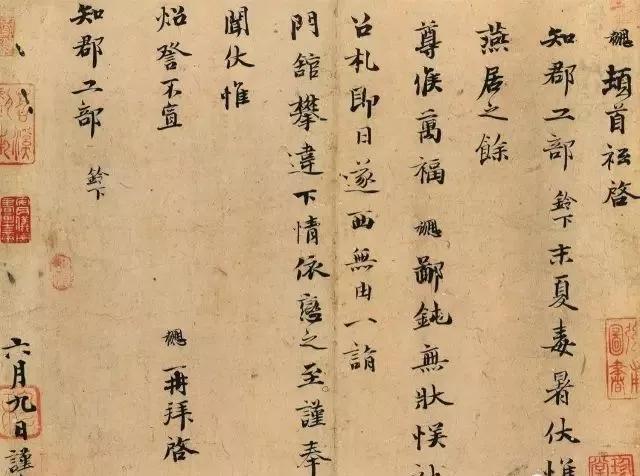 勰頓首祗啓
知郡工部鈴下末夏毒暑伏惟
燕居之餘
尊候萬福勰鄙鈍無狀悮
召札即日遂西無由一詣
門舘攀違下情依戀之至謹奉
聞伏惟
炤詧不宣勰再拜啓
知郡工部鈴下
六月九日謹